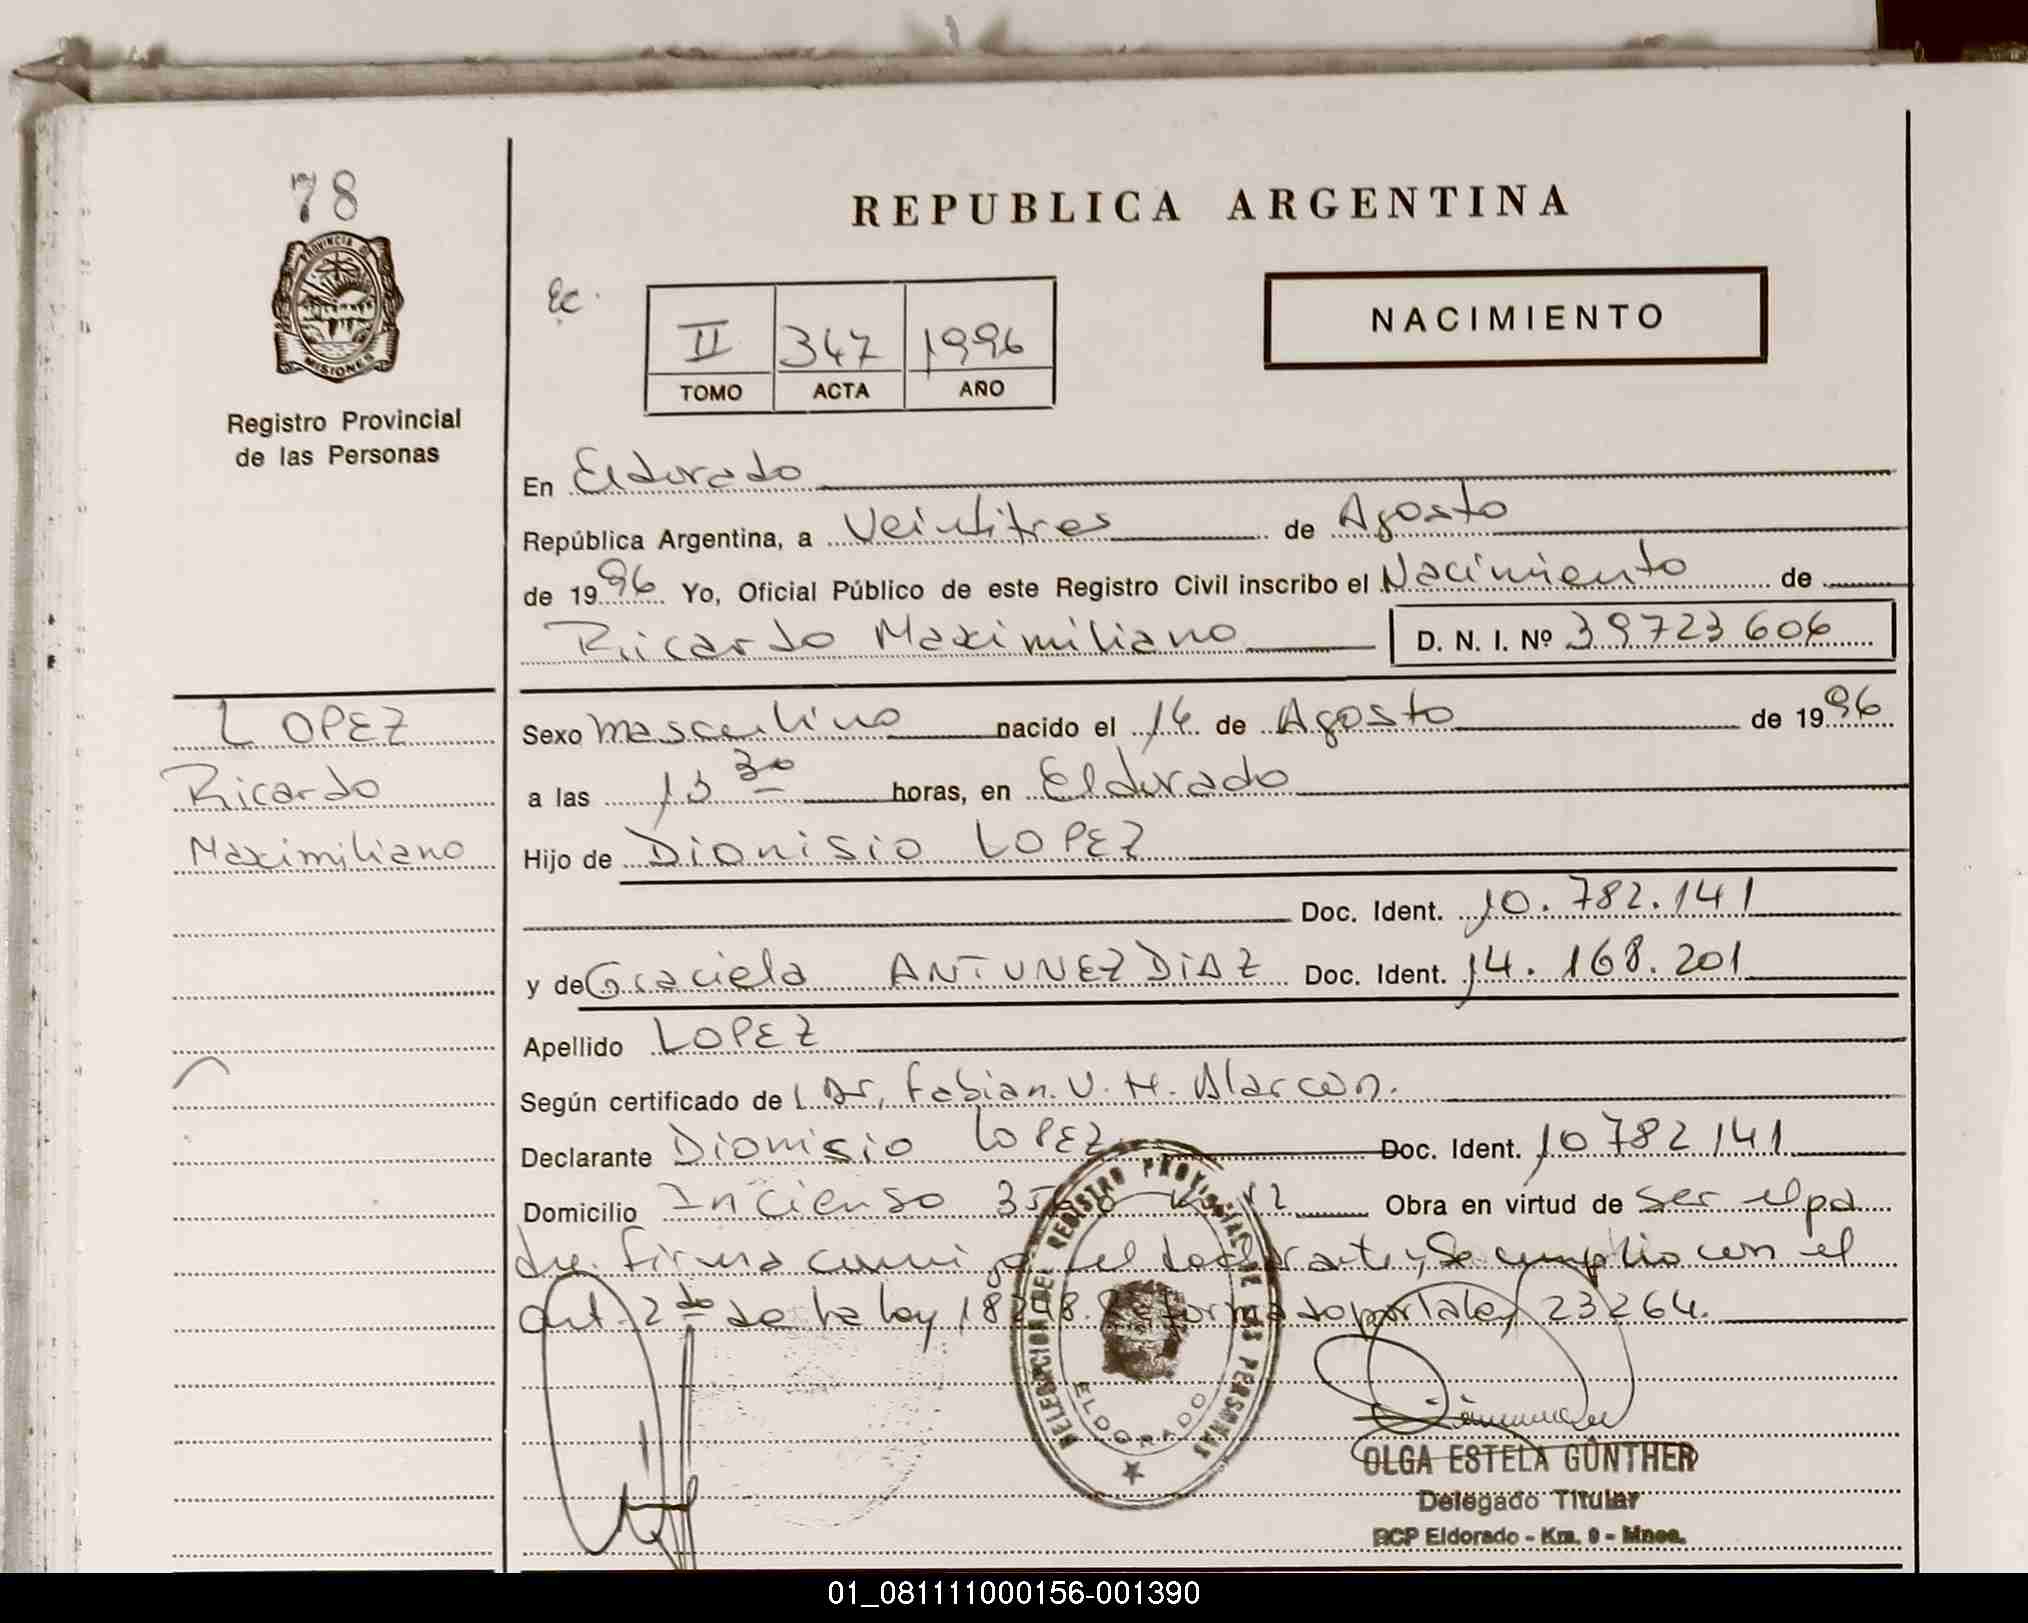 78
PROVINCIA DE
MISIONES
Registro Provincial
de las Personas
REPUBLICA ARGENTINA
Ec.
II 347 1996
TOMO ACTA AÑO
NACIMIENTO
En Eldorado
República Argentina, a Veintitres de Agosto
de 1996 Yo, Oficial Público de este Registro Civil inscribo el Nacimiento de
Ricardo Maximiliano D. N. I. Nº 39723606
LOPEZ
Ricardo
Maximiliano
Sexo masculino nacido el 14 de Agosto de 1996
a las 13 30 horas, en Eldorado
Hijo de Dionisio LOPEZ
Doc. Ident. 10.782.141
y de Graciela ANTUNEZ DIAZ Doc. Ident. 14.168.201
Apellido LOPEZ
Según certificado de Dr. Fabian. V. H. Alarcon.
Declarante Dionisio LOPEZ Doc. Ident. 10782141
Domicilio Incienso Obra en virtud de ser el pa
dre. firma el declarante, Se cumplio con el
art. 2do de la ley por la ley 23264.
DELEGACION DEL REGISTRO PROVINCIAL DE LAS PERSONAS
ELDORADO
OLGA ESTELA GÜNTHER
Delegado Titular
RCP Eldorado - Km. 9 - Mnes.
01_081111000156-001390